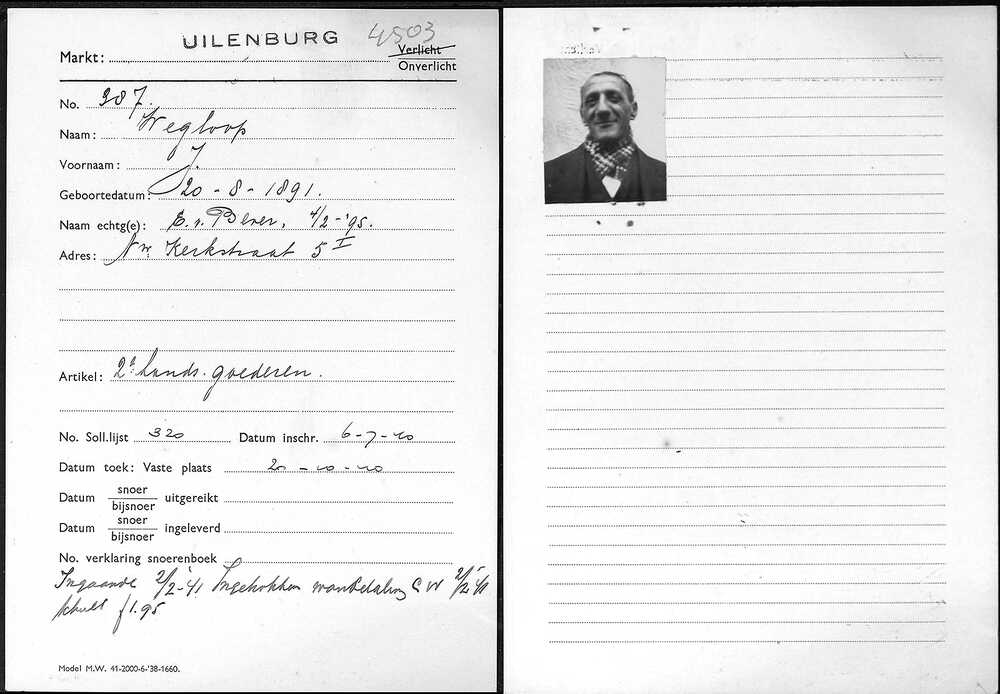 UILENBURG 4503
Markt: Verlicht
Onverlicht
No. 307.
Naam: Wegloop
Voornaam: J.
Geboortedatum: 20-8-1891.
Naam echtg(e): E. v. Bever, 4/2-'95.
Adres: Nw. Kerkstraat 5 I
Artikel: 2e hands. goederen.
No. Soll.lijst 320 Datum inschr. 6-7-40
Datum toek: Vaste plaats 20-10-40
Datum snoer/bijsnoer uitgereikt
Datum snoer/bijsnoer ingeleverd
No. verklaring snoerenboek
Ingaande 2/2-'41 Ingetrokken wanbetaling C W 2/2'41
schuld f1.95
Model M.W. 41-2000-6-'38-1660.